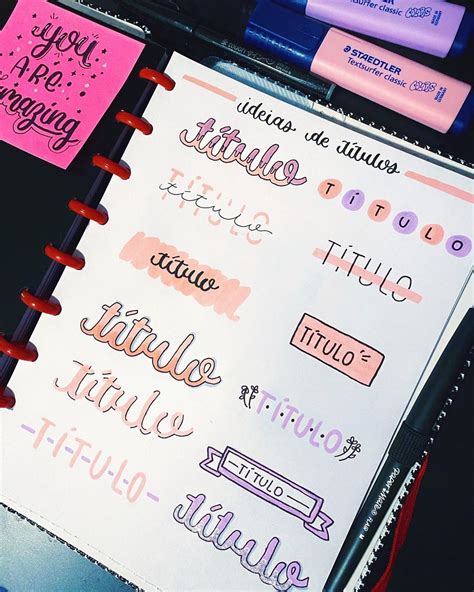 you
ARE
amazing
STAEDTLER
Textsurfer classic
ideias de títulos
título
TÍTULO
TÍTULO
título
TÍTULO
título
TÍTULO
título
título
TÍTULO
TÍTULO
TÍTULO
título
PAPER MATE FLAIR M